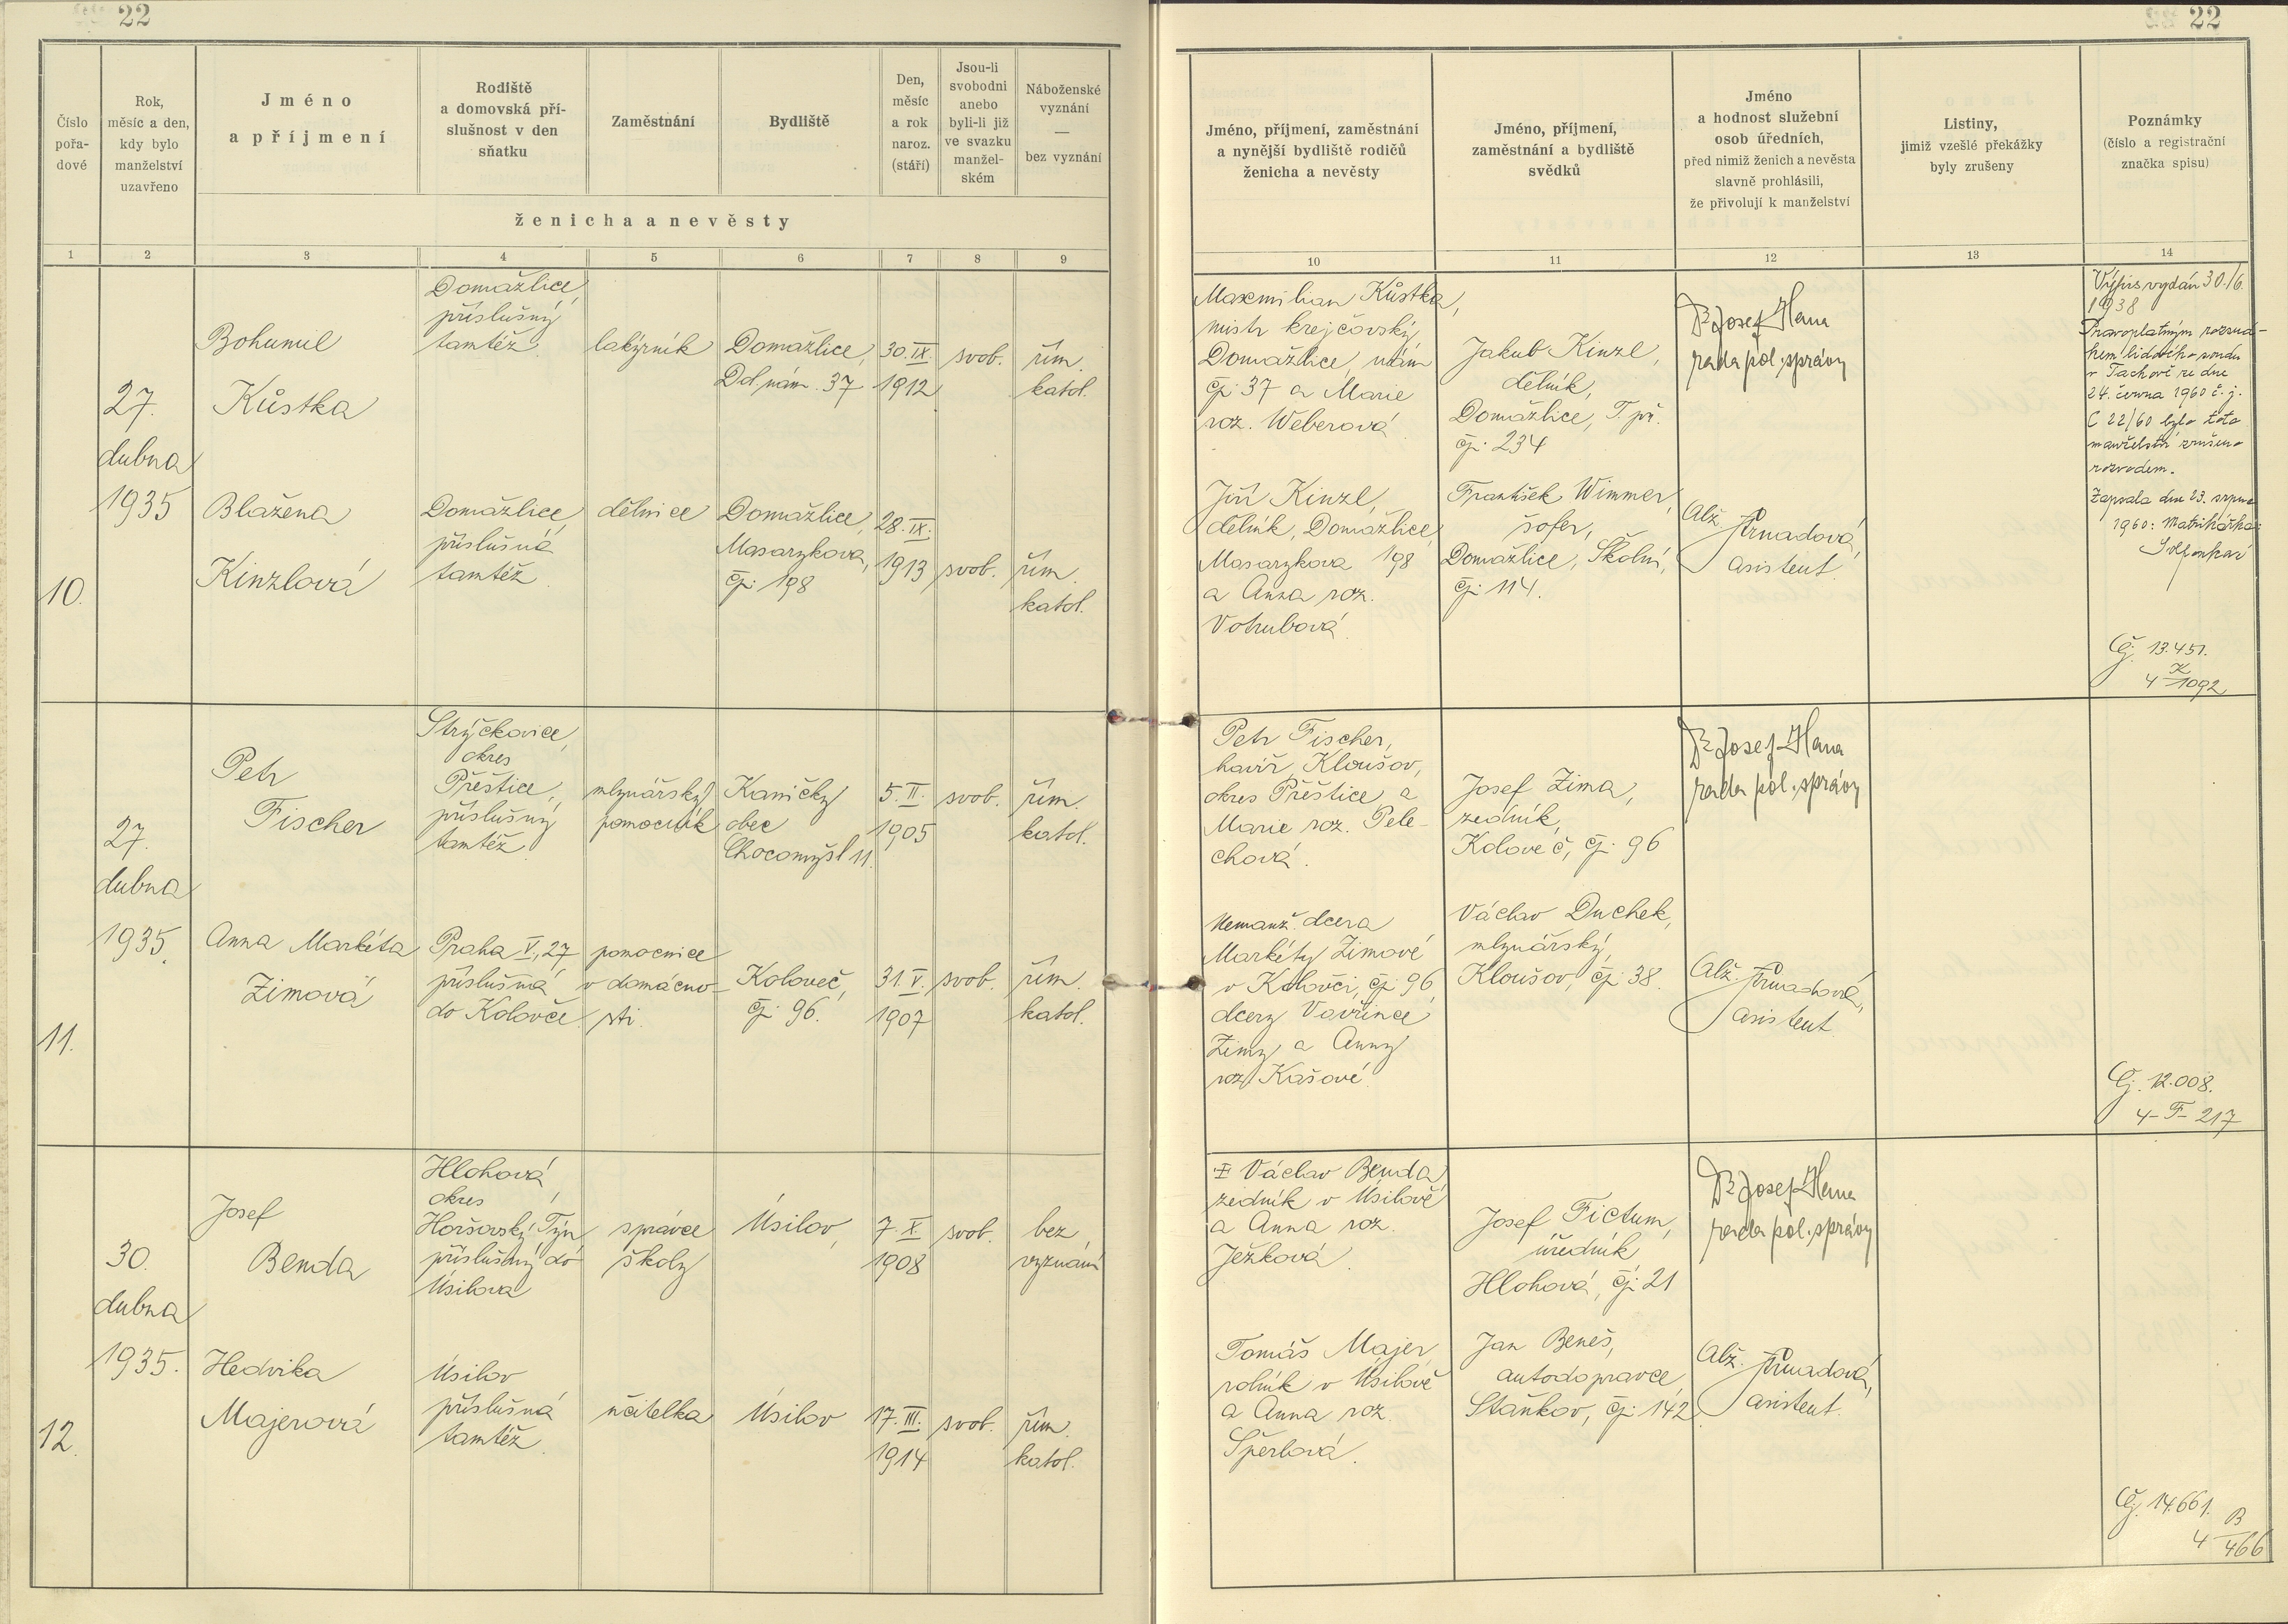 22
22
Číslo
pořa-
dové
Rok,
měsíc a den,
kdy bylo
manželství
uzavřeno
Jméno
a příjmení
Rodiště
a domovská pří-
slušnost v den
sňatku
Zaměstnání
Bydliště
Den,
měsíc
a rok
naroz.
(stáří)
Jsou-li
svobodni
anebo
byli-li již
ve svazku
manžel-
ském
Náboženské
vyznání
—
bez vyznání
ženicha a nevěsty
Jméno, příjmení, zaměstnání
a nynější bydliště rodičů
ženicha a nevěsty
Jméno, příjmení,
zaměstnání a bydliště
svědků
Jméno
a hodnost služební
osob úředních,
před nimiž ženich a nevěsta
slavně prohlásili,
že přivolují k manželství
Listiny,
jimiž vzešlé překážky
byly zrušeny
Poznámky
(číslo a registrační
značka spisu)
1 2 3 4 5 6 7 8 9 10 11 12 13 14
10.
27.
dubna
1935
Bohumil
Kůstka
Domažlice,
příslušný
tamtéž.
lakýrník
Domažlice,
Dol. nám. 37
30. IX.
1912
svob.
řím.
katol.
Blažena
Kinzlová
Domažlice,
příslušná
tamtéž.
dělnice
Domažlice,
Masarykova,
čp. 198
28. IX.
1913
svob.
řím.
katol.
Maxmilian Kůstka,
mistr krejčovský,
Domažlice, nám
čp. 37 a Marie
roz. Weberová.
Jiří Kinzl,
dělník, Domažlice,
Masarykova 198
a Anna roz.
Votrubová.
Jakub Kinzl,
dělník,
Domažlice, T. př.
čp. 234
František Wimmer,
šofer,
Domažlice, Školní,
čp. 114.
Dr Josef Hana
rada pol. správy
Alž.
asistent.
Výpis vydán 30./6.
1938
Pravoplatným rozsud-
kem lidového soudu
v Tachově ze dne
24. června 1960 č. j.
C 22/60 bylo toto
manželství zrušeno
rozvodem.
Zapsala dne 23. srpna
1960: Matrikářka:
Čj. 13.451.
4 K/1092
11.
27.
dubna
1935.
Petr
Fischer
Strýčkovice,
okres
Přeštice,
příslušný
tamtéž.
mlynářský
pomocník
Kaničky
obec
Chocomyšl 11.
5. II.
1905
svob.
řím.
katol.
Anna Markéta
Zimová
Praha V., 27
příslušná
do Kolovče
pomocnice
v domácno-
sti.
Koloveč,
čp. 96.
31. V.
1907
svob.
řím.
katol.
Petr Fischer,
havíř, Kloušov,
okres Přeštice, a
Marie roz. Pele-
chová.
Nemanž. dcera
Markéty Zimové
v Kolovči, čp. 96,
dcery Vavřince
Zimy a Anny
roz. Kašové.
Josef Zima,
zedník,
Koloveč, čp. 96
Václav Duchek,
mlynářský,
Kloušov, čp. 38.
Dr Josef Hana
rada pol. správy
Alž.
asistent
Čj. 12.008.
4-F-217
12.
30.
dubna
1935.
Josef
Benda
Hlohová,
okres
Horšovský Týn,
příslušný do
Úsilova
správce
školy
Úsilov,
7 X.
1908
svob.
bez
vyznání
Hedvika
Majerová
Úsilov
příslušná
tamtéž.
učitelka
Úsilov
17. III.
1914
svob.
řím.
katol.
Václav Benda
zedník v Úsilově
a Anna roz.
Ježková.
Tomáš Majer,
rolník v Úsilově
a Anna roz.
Šperlová.
Josef Fictum,
úředník
Hlohová, čp. 21
Jan Beneš,
autodopravce
Staňkov, čp. 142
Dr Josef Hana
rada pol. správy
Alž.
asistent.
Čj. 14.661.
4 B/466